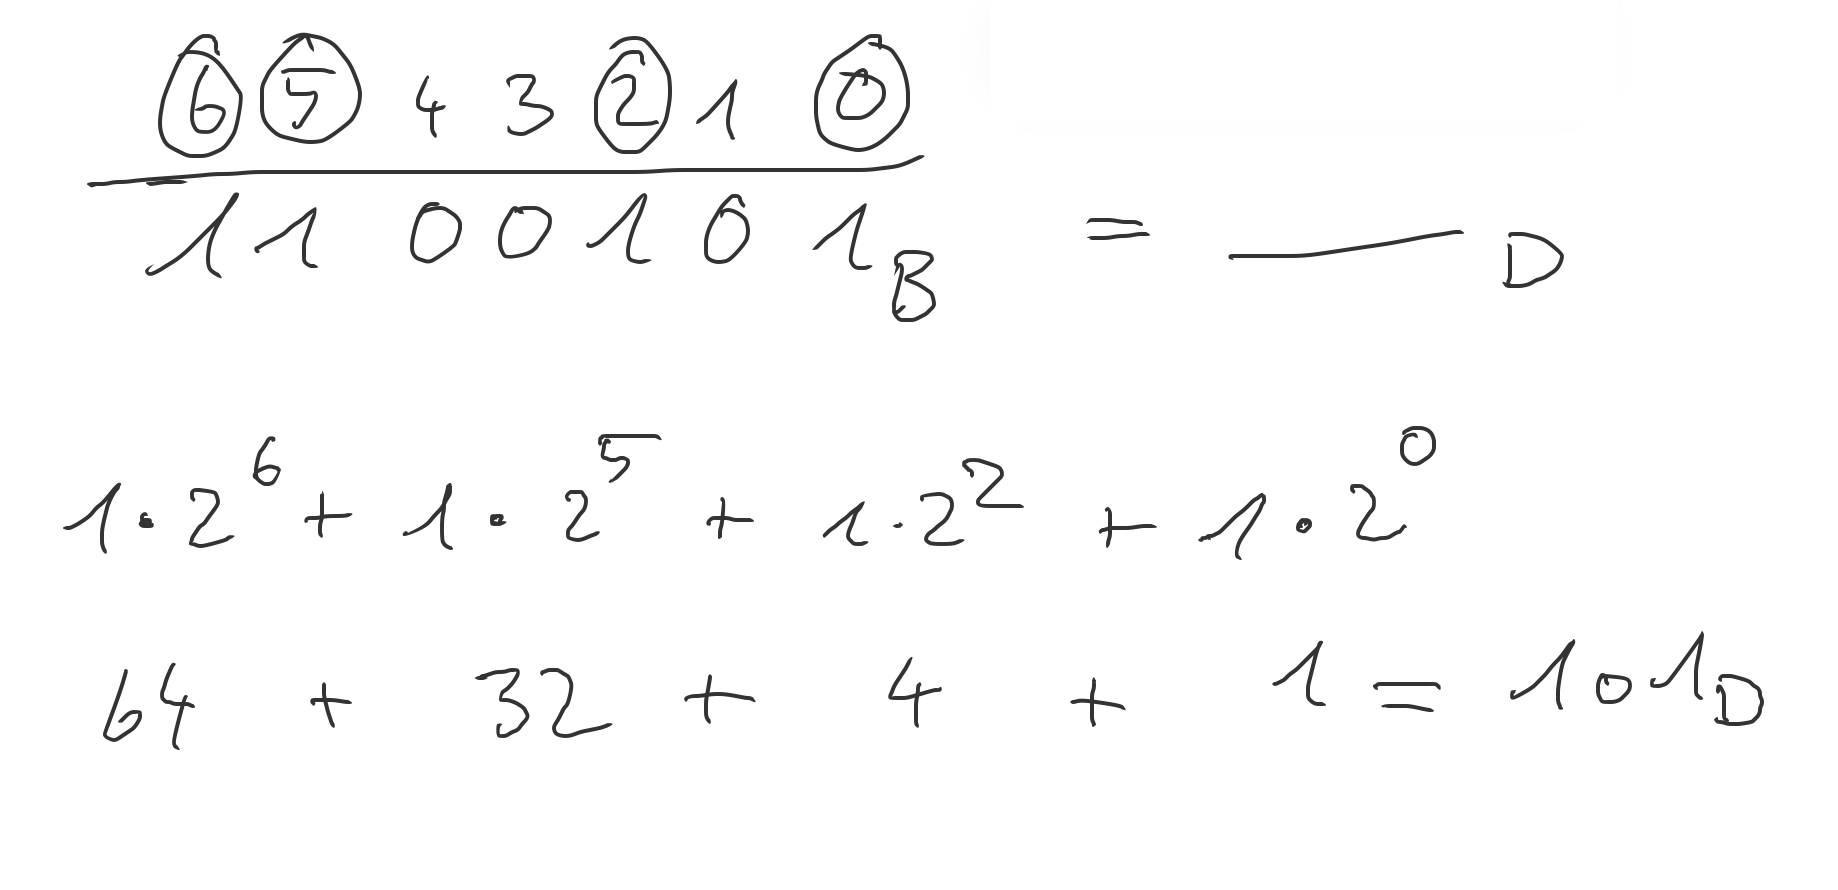 6 5 4 3 2 1 0
1 1 0 0 1 0 1 B = ___ D
1 · 2^6 + 1 · 2^5 + 1 · 2^2 + 1 · 2^0
64 + 32 + 4 + 1 = 101 D